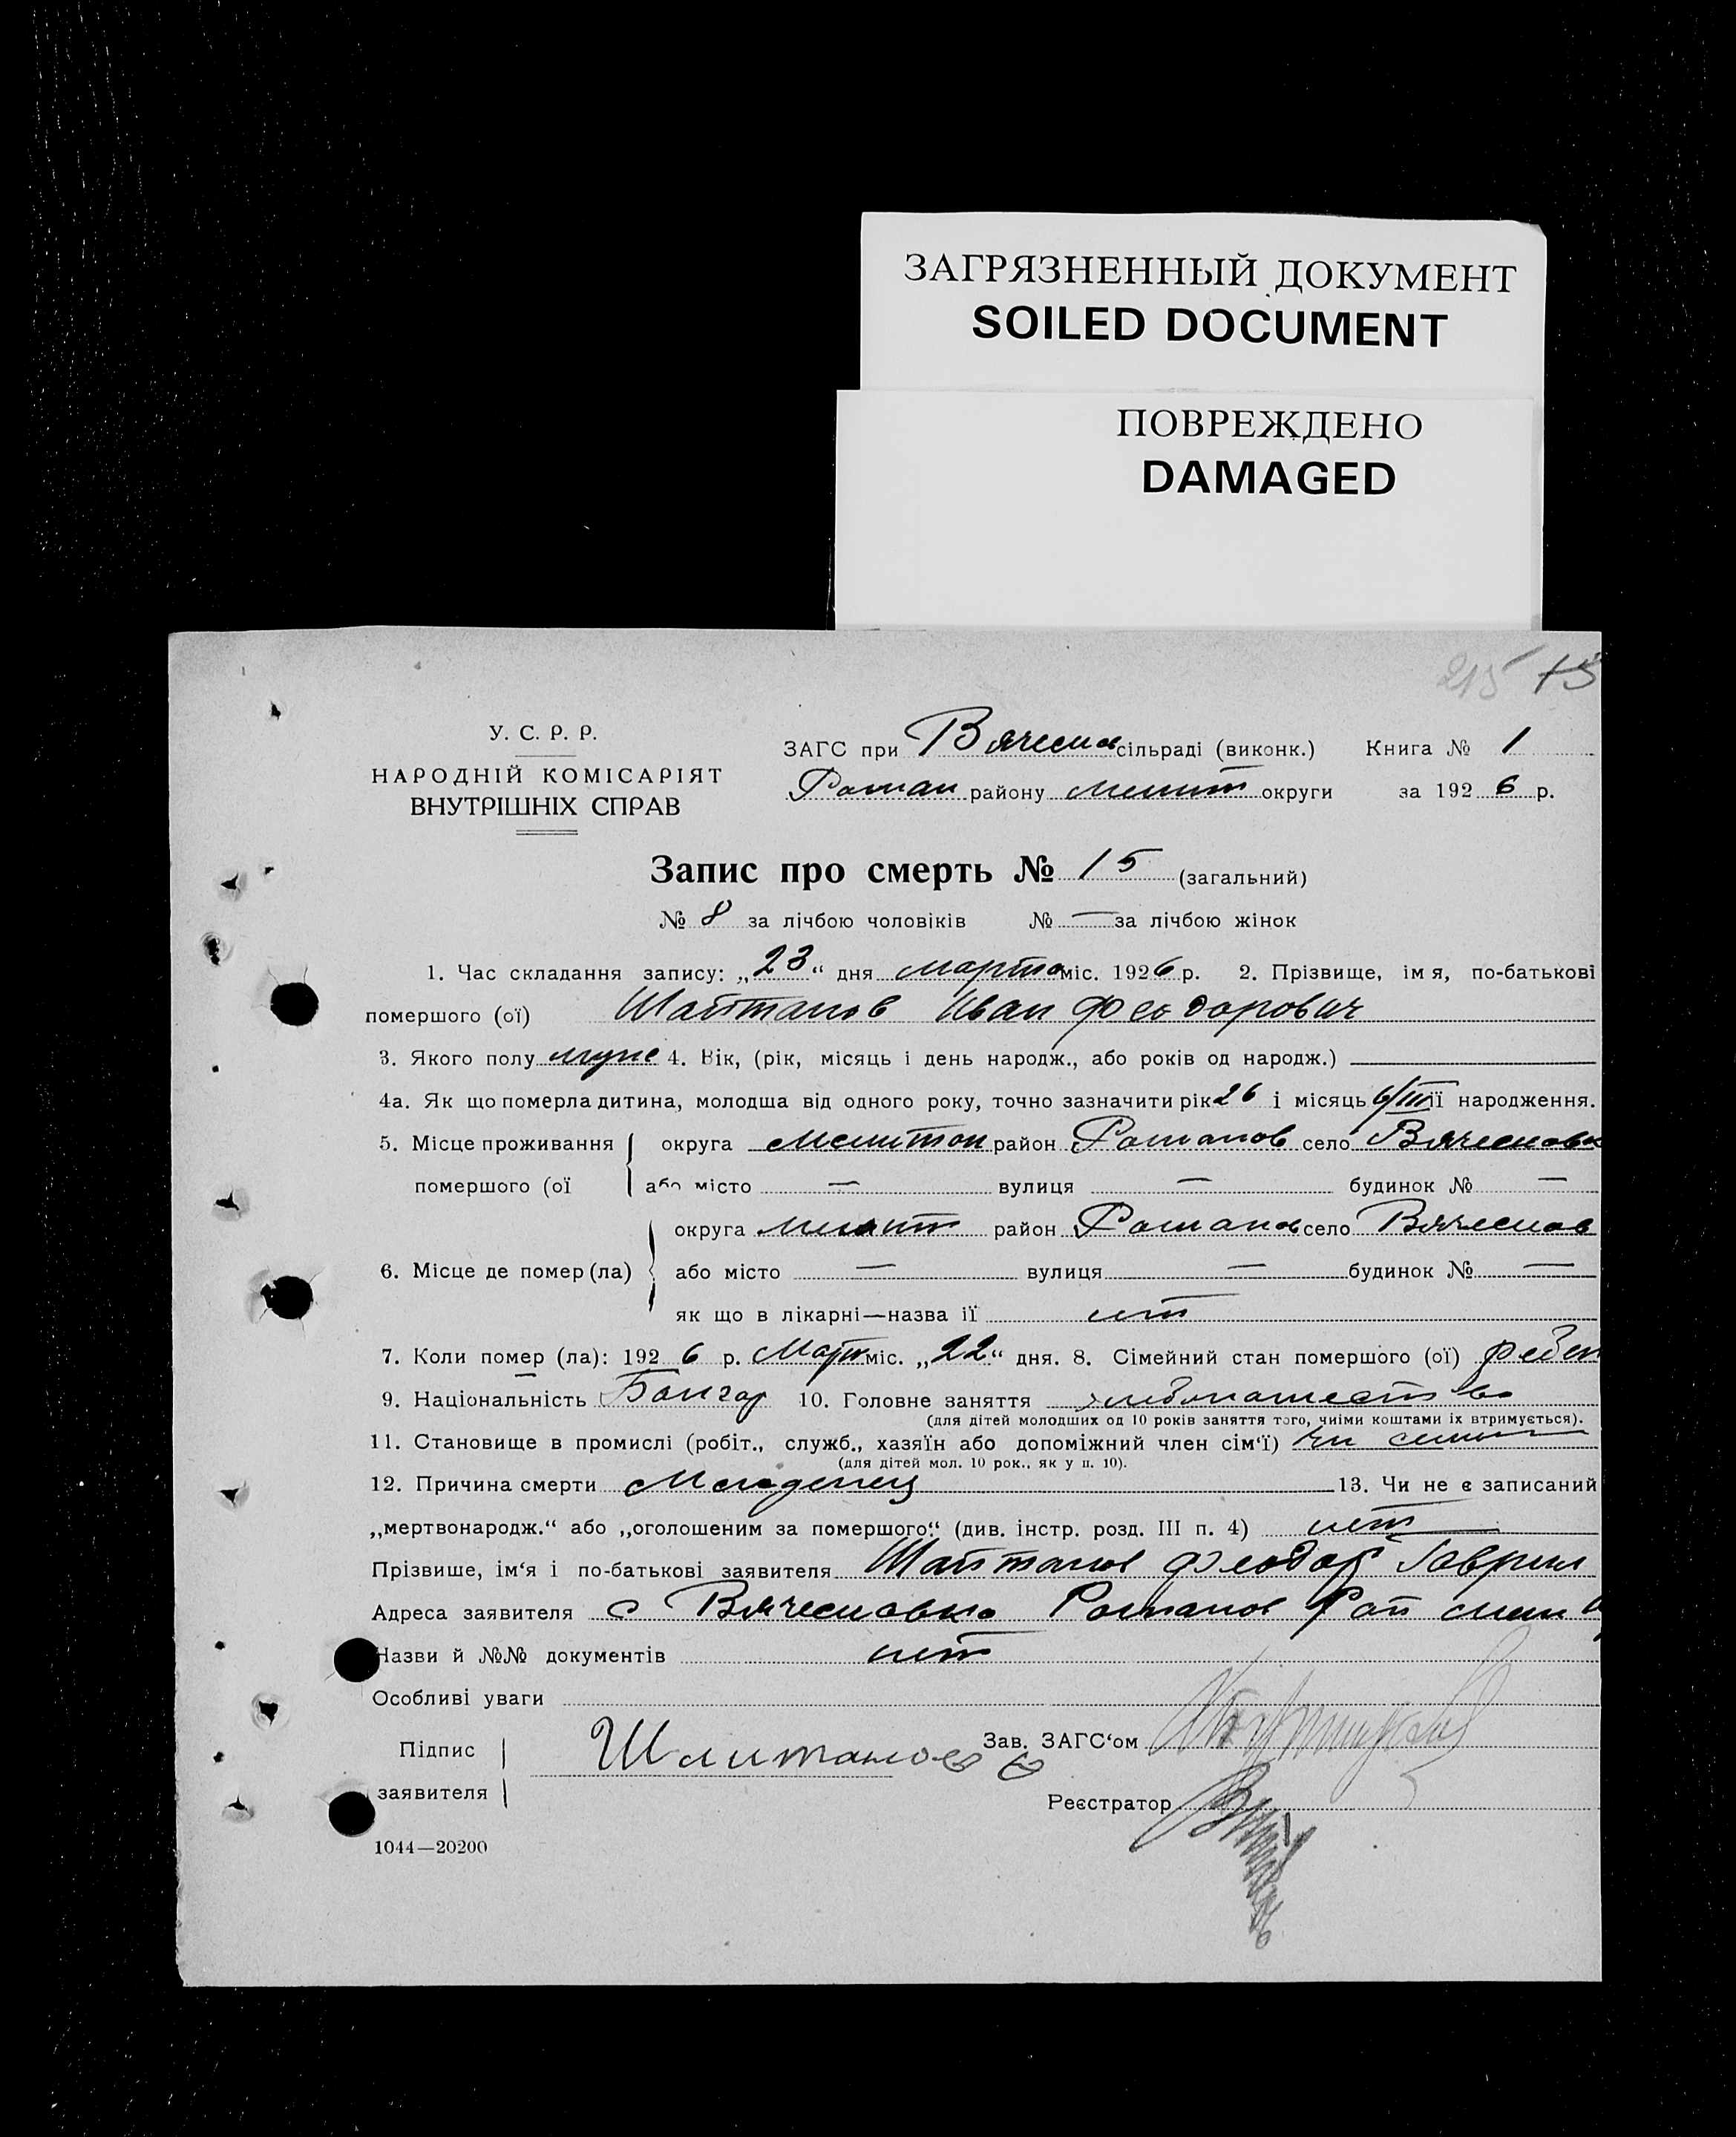 ЗАГРЯЗНЕННЫЙ ДОКУМЕНТ
SOILED DOCUMENT
ПОВРЕЖДЕНО
DAMAGED
215 15
У. С. Р. Р.
НАРОДНІЙ КОМІСАРІЯТ
ВНУТРІШНІХ СПРАВ
ЗАГС при Вячеслав сільраді (виконк.) Книга № 1
Роман району Мелит округи за 1926 р.
Запис про смерть № 15 (загальний)
№ 8 за лічбою чоловіків № — за лічбою жінок
1. Час складання запису: „23“ дня марта міс. 1926 р. 2. Прізвище, імя, по-батькові
помершого (ої) Шайтанов Иван Феодорович
3. Якого полу муже 4. Вік, (рік, місяць і день народж., або років од народж.) —
4а. Як що померла дитина, молодша від одного року, точно зазначити рік 26 і місяць 6/III її народження.
5. Місце проживання округа Мелитоп район Романов село Вячеславк
помершого (ої або місто — вулиця — будинок № —
округа Мелит район Романов село Вячеслав
6. Місце де помер (ла) або місто — вулиця — будинок № —
як що в лікарні—назва ії нет
7. Коли помер (ла): 1926 р. Март міс. „22“ дня. 8. Сімейний стан помершого (ої) ребен
9. Національність Болгар 10. Головне заняття хлебопашество
(для дітей молодших од 10 років заняття того, чиїми коштами їх втримується).
11. Становище в промислі (робіт., служб., хазяїн або допоміжний член сім'ї) чл семьи
(для дітей мол. 10 рок., як у п. 10).
12. Причина смерти Младенец 13. Чи не є записаний
„мертвонародж.“ або „оголошеним за помершого“ (див. інстр. розд. III п. 4) нет
Прізвише, ім'я і по-батькові заявителя Шайтанов Феодор Гаврил
Адреса заявителя с Вячеславка Романов Рай мели
Назви й №№ документів нет
Особливі уваги
Підпис
заявителя
Шаитанов Ф
Зав. ЗАГС'ом
Реєстратор
1044—20200